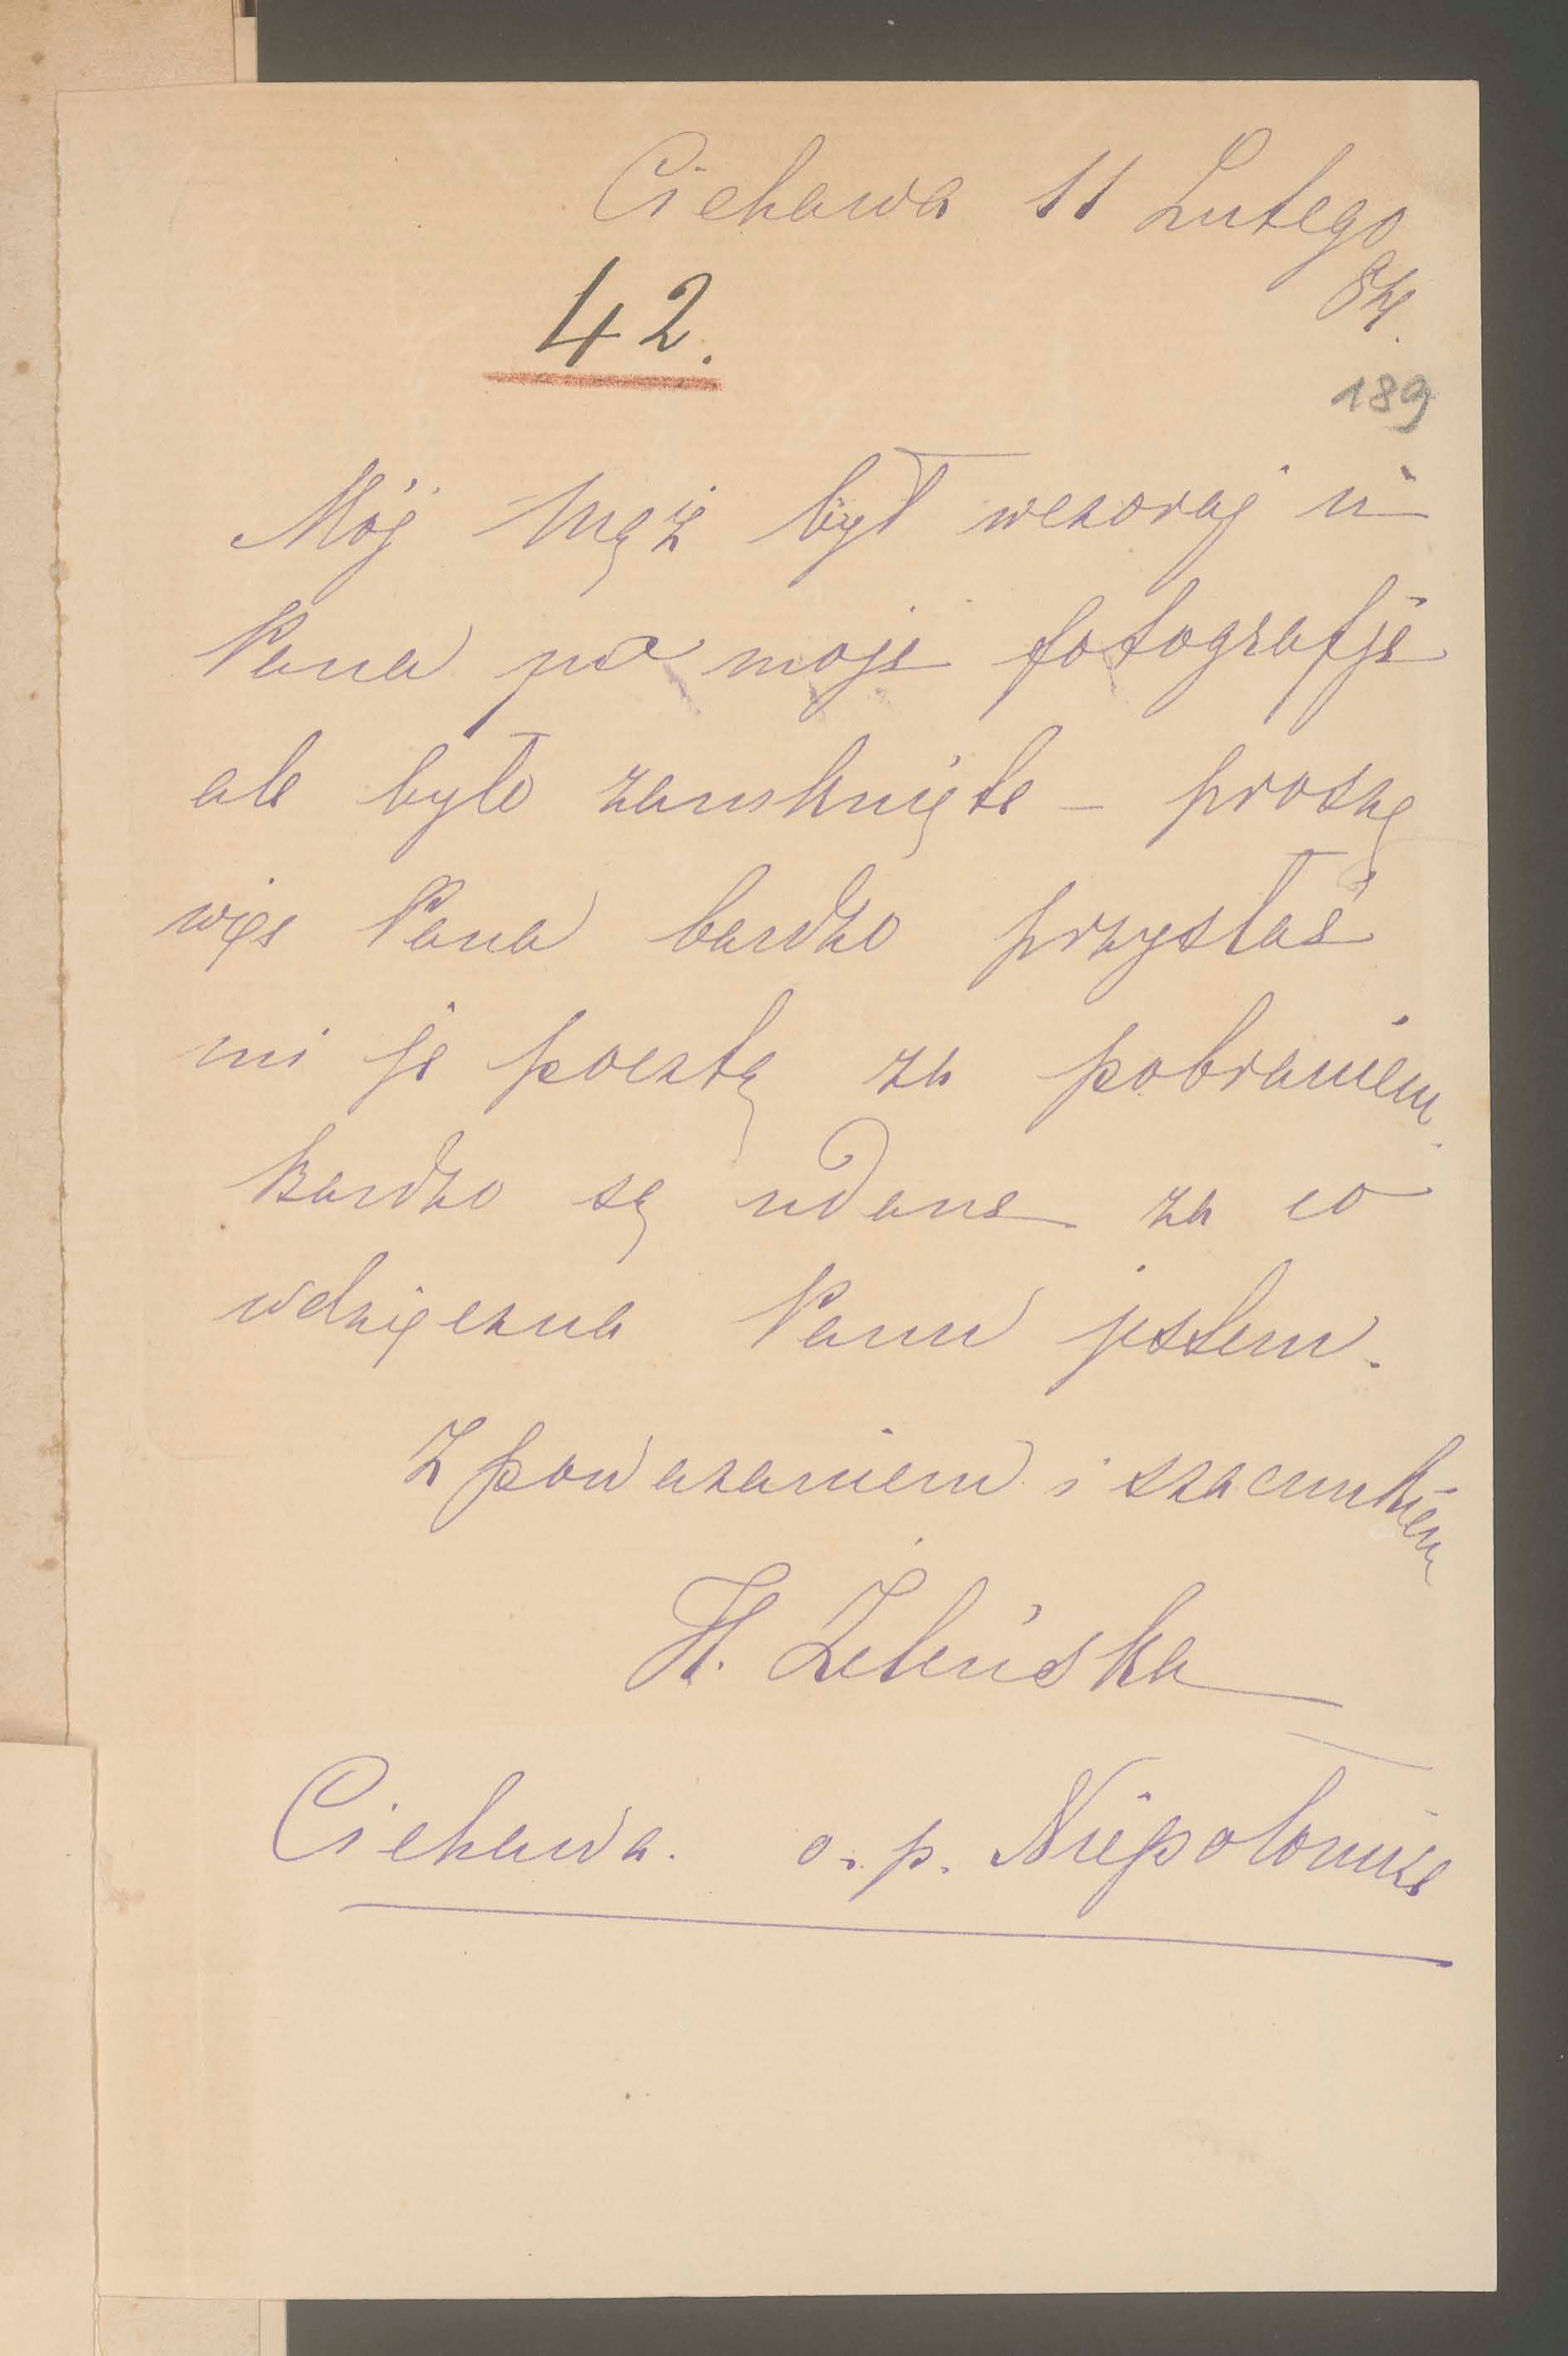 Ciekawa 11 Lutego
84.
42.
189
Mój Mąż był wczoraj u
Pana po moje fotografje
ale było zamknięte – proszę
więc Pana bardzo przysłać
mi je pocztą za pobraniem.
Bardzo są udane za co
wdzięczna Panu jestem.
Z poważaniem i szacunkiem
H. Żeleńska
Ciekawa. o. p. Niepołomice